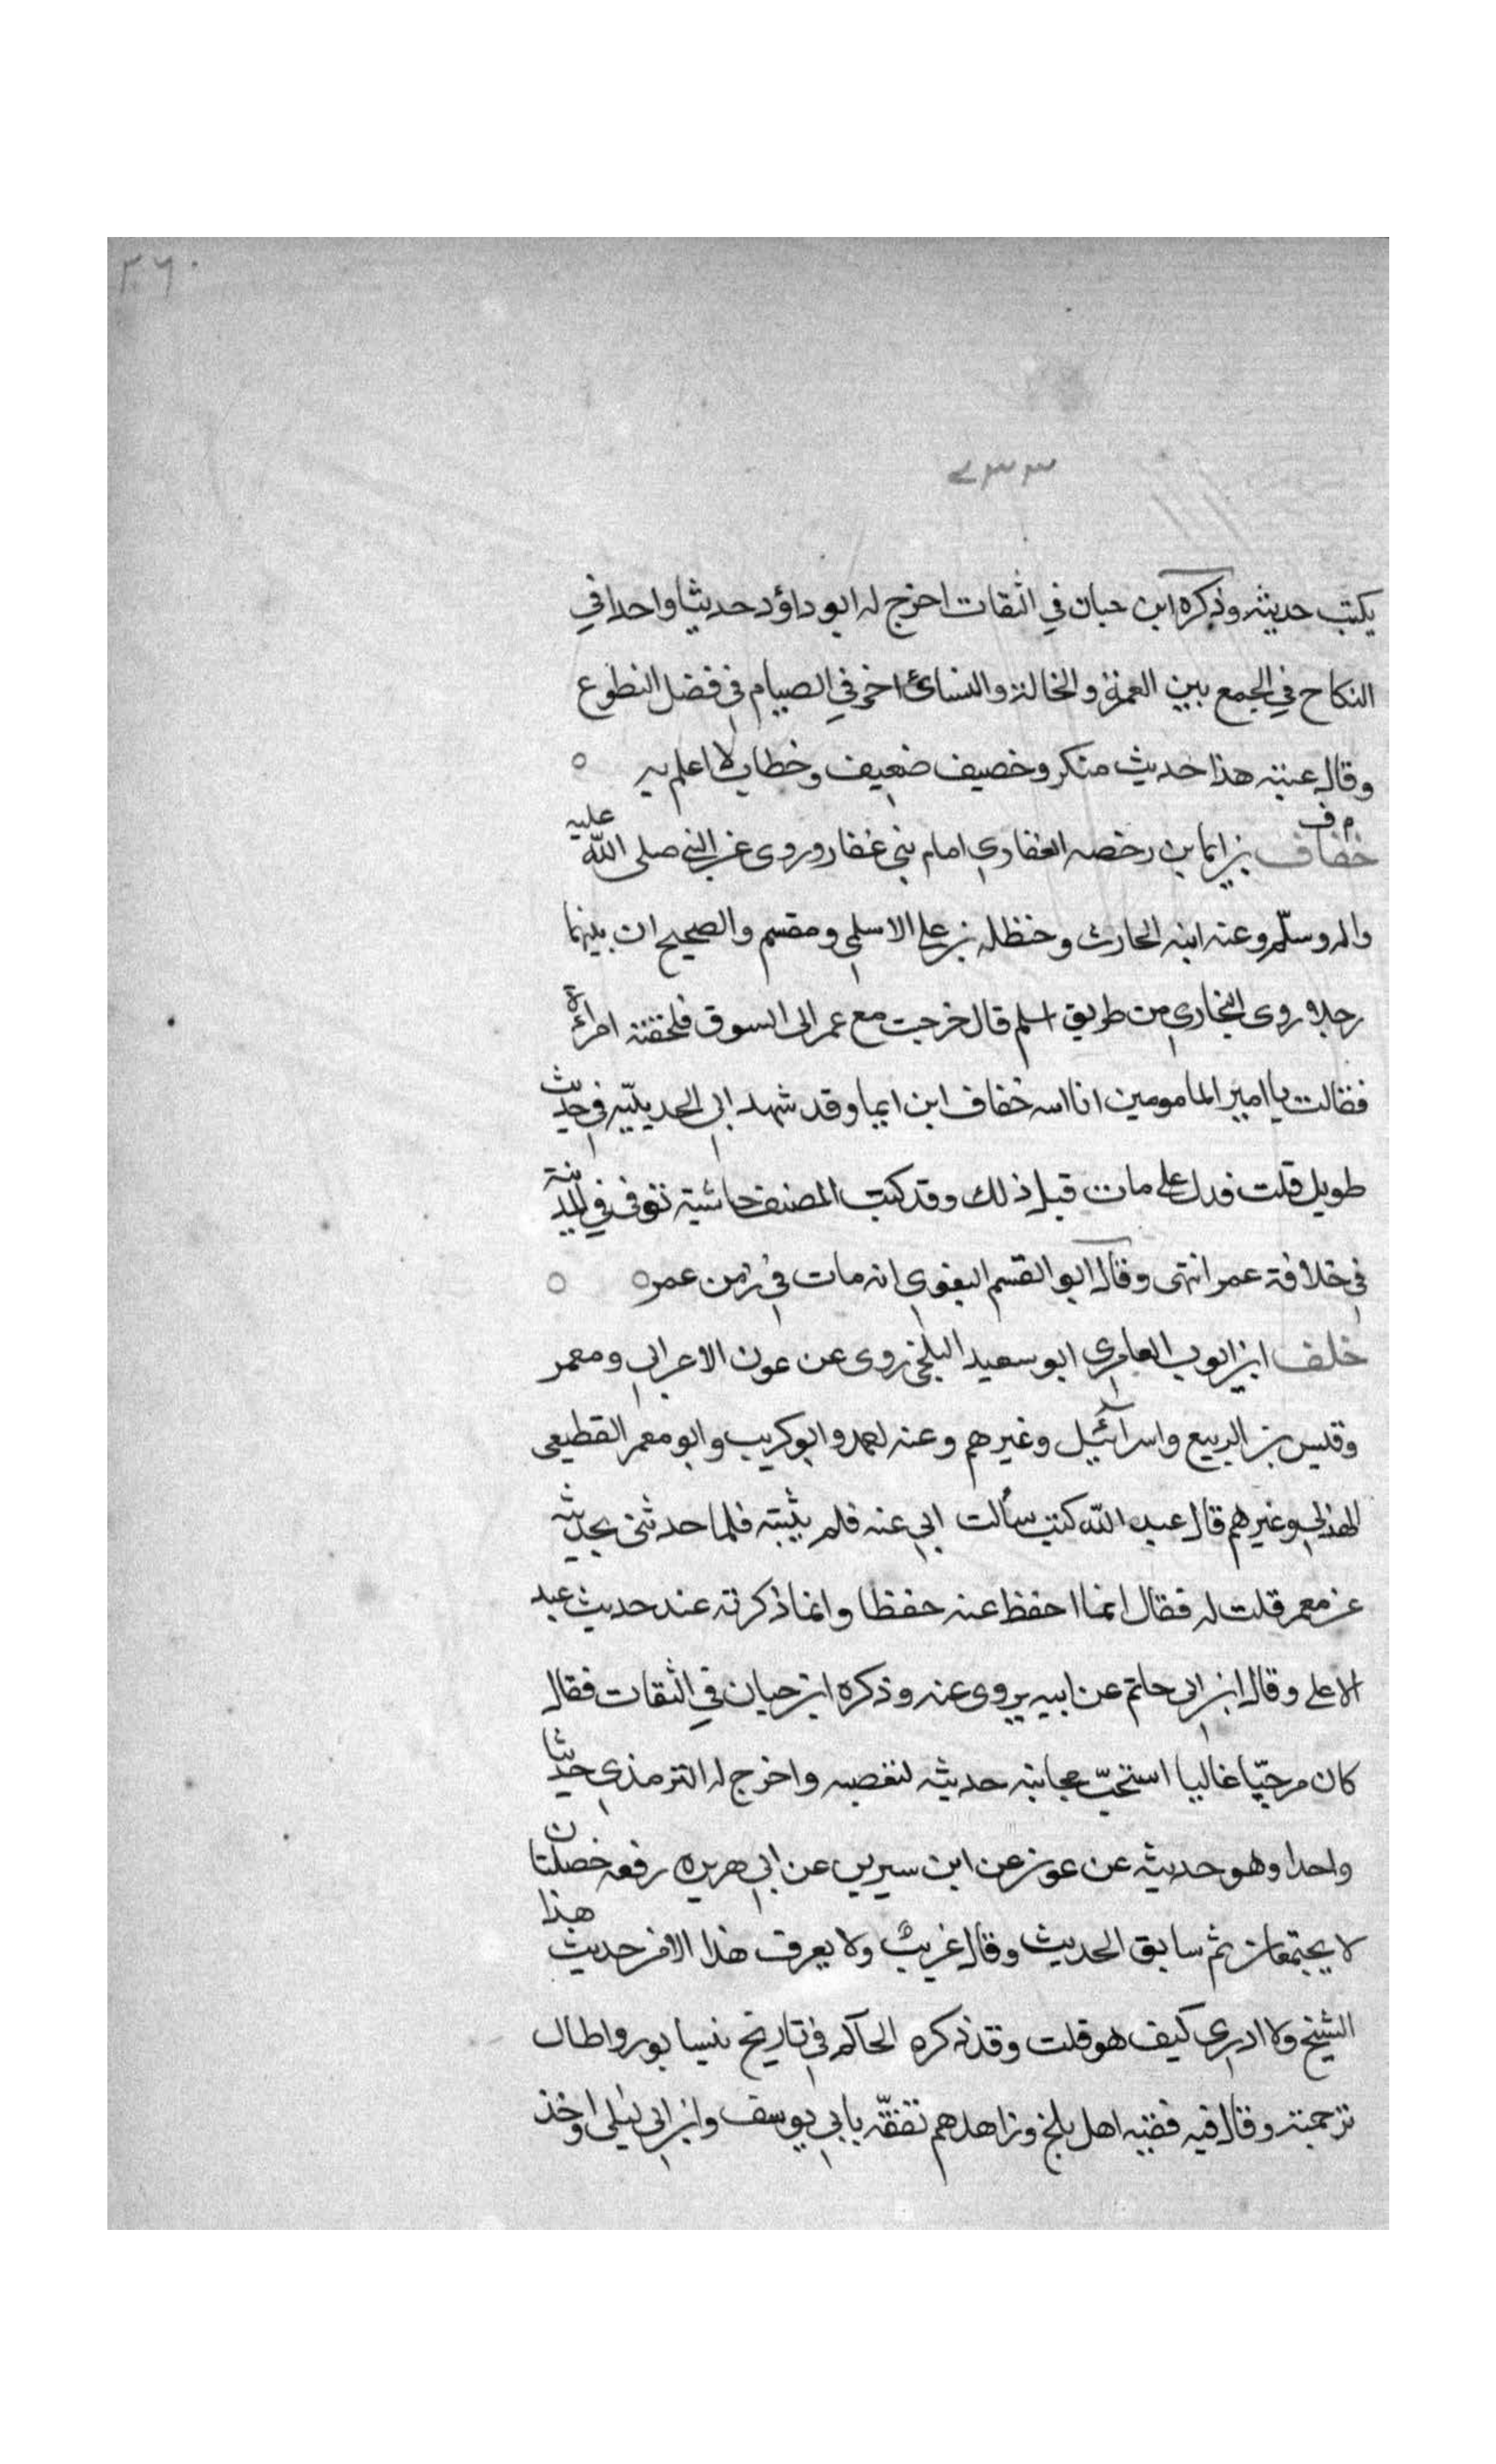 ٣٦٠
يكتب حديثه وذكره ابن حبان في الثقات اخرج له ابو داؤد حديثا واحدا في
النكاح في الجمع بين العمة والخالة والنسائ اخر في الصيام في فضل التطوع
وقال عنبته هذا حديث منكر وخصيف ضعيف وخطاب لا اعلم به ○
م ف
خفاف بن ايما بن رخصه الغفاري امام بني غفار وروى عن النبي صلى الله عليه
واله وسلّم وعنه ابنه الحارث وحنظله بن علي الاسلمي ومقسم والصحيح ان بينهما
رجلا وروى البخاري من طريق اسلم قال خرجت مع عمر الى السوق فلحقته امرأة
فقالت يا امير المامومين انا اسه خفاف ابن ايما وقد شهد ابي الحديبيّه في حديث
طويل قلت فدل على مات قبل ذلك وقد كتب المصنف حاشية توفى في المدينة
في خلافة عمر انتهى وقال ابو القسم البغوي انه مات في زمن عمر ○ ○
خلف ابن ايوب العامري ابو سعيد البلخي روى عن عون الاعرابي ومعمر
وقيس بن الربيع واسرائيل وغيرهم وعنه احمد وابو كريب وابو معمر القطيعى
الهذلي وغيرهم قال عبد الله كنت سألت ابي عنه فلم يثبته فلما حدثني بحديثه
عن معمر قلت له فقال انما احفظ عنه حفظا وانما ذكرته عند حديث عبد
الاعلى وقال ابن ابى حاتم عن ابيه يروى عنه وذكره ابن حبان في الثقات فقال
كان مرجيّا غاليا استحبّ مجانبته حديثه لتعصبه واخرج له الترمذي حديثا
واحدا وهو حديثه عن عون عن ابن سيرين عن ابي هريره رفعه خصلتان
لا يجتمعان ثم سابق الحديث وقال غريبٌ ولا يعرف هذا الا من حديث هذا
الشيخ ولا ادري كيف هو قلت وقد ذكره الحاكم في تاريخ نيسابور واطال
ترجمته وقال فيه فقيه اهل بلخ وزاهدهم تفقّه بابي يوسف وابن ابى ليلى واخذ